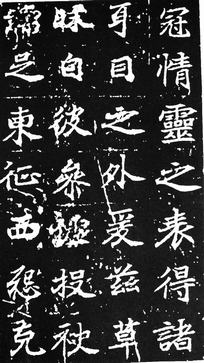 冠情靈之表得諸
耳目之外爰茲草
昧自彼叅墟投袂
足東征西怨克